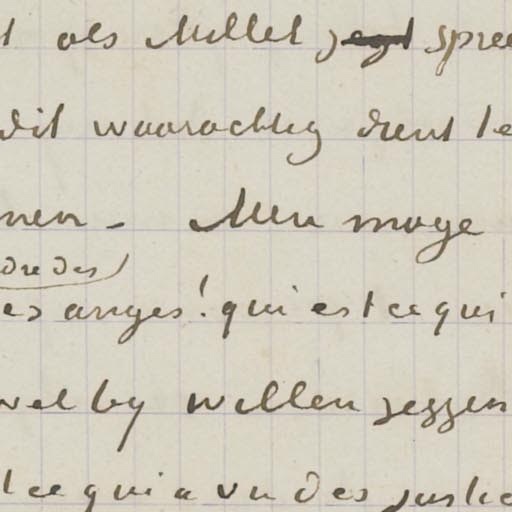 t als Millet zegt spree
dit waarachtig dient te
nen – Men moge
dre des
es anges! qui est ce qui
wel by willen zeggen
t ce qui a vu des justic